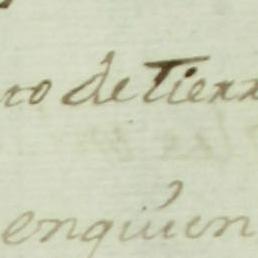 ro de Tierr
enquien